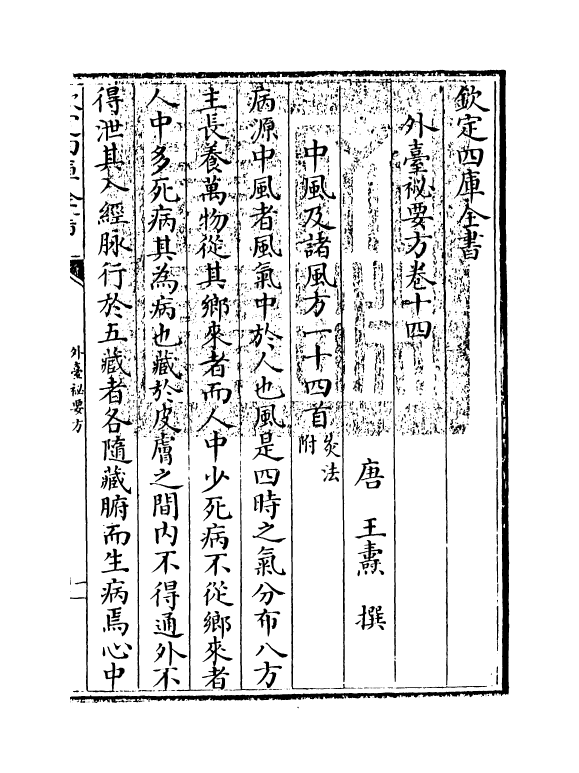 欽定四庫全書
外臺祕要方卷十四
唐 王燾 撰
中風及諸風方一十四首灸法附
病源中風者風氣中於人也風是四時之氣分布八方
主長養萬物從其鄉來者而人中少死病不從鄉來者
人中多死病其為病也藏於皮膚之間内不得通外不
得泄其入經脉行於五藏者各隨藏腑而生病焉心中
外臺祕要方